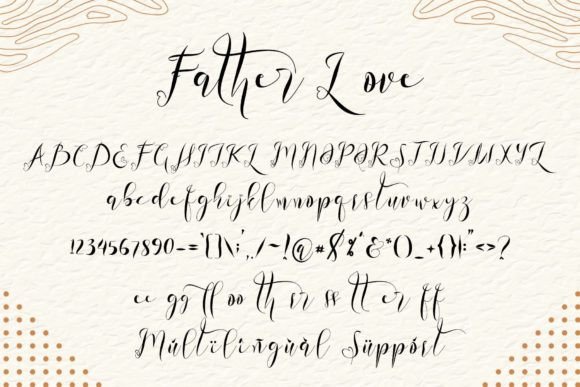 Father Love
ABCDEFGHIJKL MNOPQRSTUVWXYZ
abcdefghijklmnopqrstuvwxyz
1234567890-=`[]\;',./~!@#$%^&*()_+{}|:"<>?
ee gg ff oo th sr ss tt er ff
Múltïlíñgùàl Süppórt